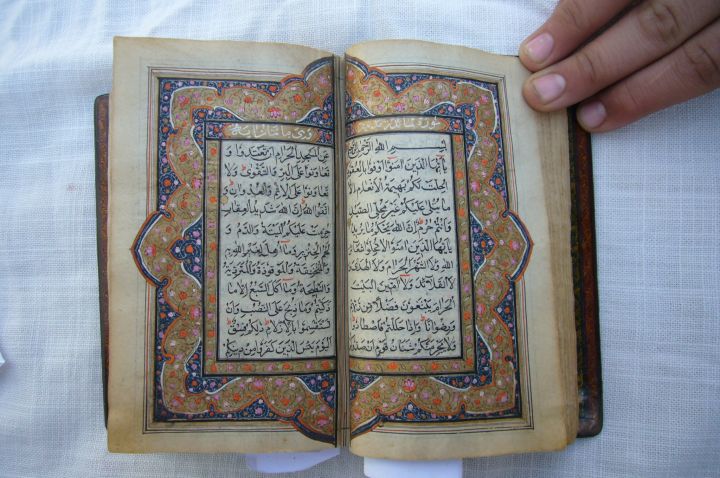 سورة المائدة
بسم الله الرحمن الرحيم
يا أيها الذين آمنوا أوفوا بالعقود
أحلت لكم بهيمة الأنعام إلا
ما يتلى عليكم غير محلي الصيد
وأنتم حرم إن الله يحكم ما يريد
يا أيها الذين آمنوا لا تحلوا شعائر
الله ولا الشهر الحرام ولا الهدي و
لا القلائد ولا آمين البيت
الحرام يبتغون فضلا من ربهم
ورضوانا وإذا حللتم فاصطادوا
ولا يجرمنكم شنآن قوم أن صدوكم
عن المسجد الحرام أن تعتدوا و
تعاونوا على البر والتقوى ولا
تعاونوا على الإثم والعدوان و
اتقوا الله إن الله شديد العقاب
حرمت عليكم الميتة والدم و
لحم الخنزير وما أهل لغير الله به
والمنخنقة والموقوذة والمتردية
والنطيحة وما أكل السبع إلا ما
ذكيتم وما ذبح على النصب وأن
تستقسموا بالأزلام ذلكم فسق
اليوم يئس الذين كفروا من دينكم